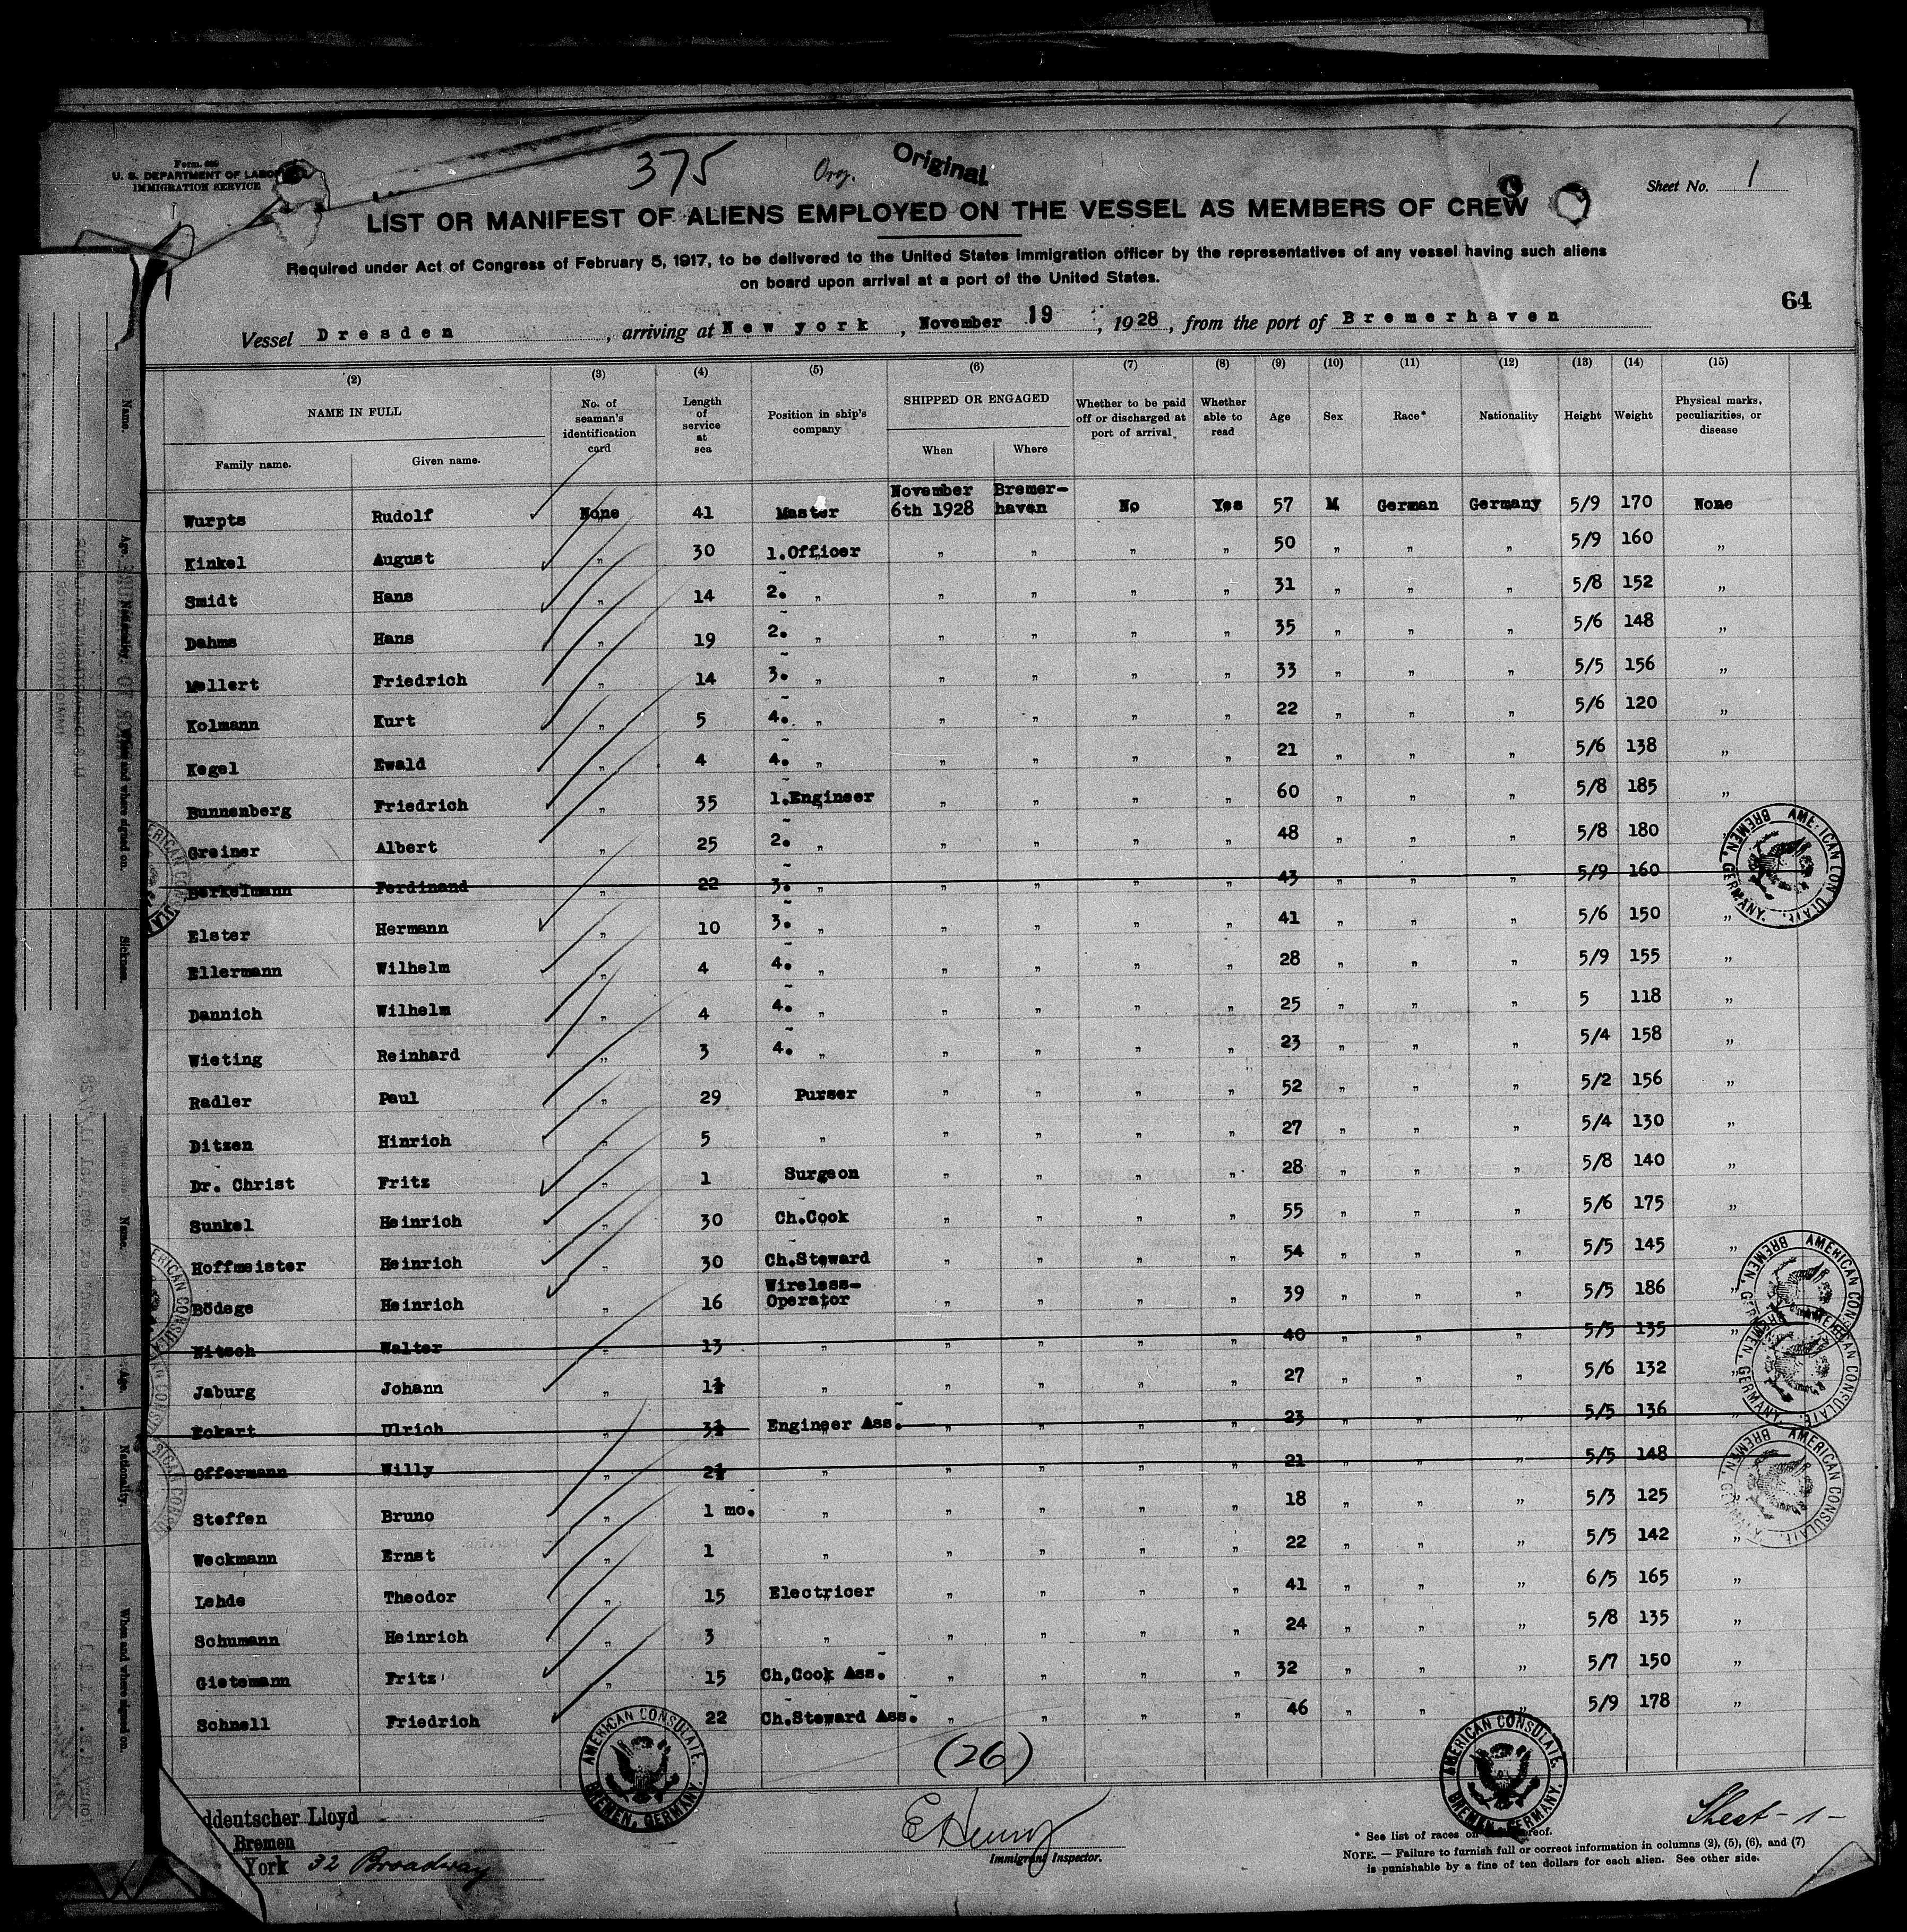 Form 680
U. S. DEPARTMENT OF LABOR
IMMIGRATION SERVICE
375
Org.
Original
Sheet No. 1
LIST OR MANIFEST OF ALIENS EMPLOYED ON THE VESSEL AS MEMBERS OF CREW
Required under Act of Congress of February 5, 1917, to be delivered to the United States immigration officer by the representatives of any vessel having such aliens
on board upon arrival at a port of the United States.
64
Vessel Dresden, arriving at New york, November 19, 1928, from the port of Bremerhaven
(2) (3) (4) (5) (6) (7) (8) (9) (10) (11) (12) (13) (14) (15)
NAME IN FULL No. of seaman's identification card Length of service at sea Position in ship's company SHIPPED OR ENGAGED Whether to be paid off or discharged at port of arrival Whether able to read Age Sex Race* Nationality Height Weight Physical marks, peculiarities, or disease
Family name. Given name. When Where
Wurpts Rudolf None 41 Master November 6th 1928 Bremer-haven No Yes 57 M German Germany 5/9 170 None
Kinkel August " 30 1.Officer " " " " 50 " " " 5/9 160 "
Smidt Hans " 14 2. " " " " " 31 " " " 5/8 152 "
Dahms Hans " 19 2. " " " " " 35 " " " 5/6 148 "
Mellert Friedrich " 14 3. " " " " " 33 " " " 5/5 156 "
Kolmann Kurt " 5 4. " " " " " 22 " " " 5/6 120 "
Kegel Ewald " 4 4. " " " " " 21 " " " 5/6 138 "
Bunnenberg Friedrich " 35 1.Engineer " " " " 60 " " " 5/8 185 "
Greiner Albert " 25 2. " " " " " 48 " " " 5/8 180
Berkelmann Ferdinand " 22 3. " " " " " 43 " " " 5/9 160
Elster Hermann " 10 3. " " " " " 41 " " " 5/6 150 "
Ellermann Wilhelm " 4 4. " " " " " 28 " " " 5/9 155 "
Dannich Wilhelm " 4 4. " " " " " 25 " " " 5 118 "
Wieting Reinhard " 3 4. " " " " " 23 " " " 5/4 158 "
Radler Paul " 29 Purser " " " " 52 " " " 5/2 156 "
Ditzen Hinrich " 5 " " " " " 27 " " " 5/4 130 "
Dr. Christ Fritz " 1 Surgeon " " " " 28 " " " 5/8 140 "
Sunkel Heinrich " 30 Ch.Cook " " " " 55 " " " 5/6 175 "
Hoffmeister Heinrich " 30 Ch.Steward " " " " 54 " " " 5/5 145 "
Bödege Heinrich " 16 Wireless-Operator " " " " 39 " " " 5/5 186 "
Nitsch Walter " 13 " " " " " 40 " " " 5/5 135 "
Jaburg Johann " 1½ " " " " " 27 " " " 5/6 132 "
Eckart Ulrich " 3½ Engineer Ass. " " " " 23 " " " 5/5 136 "
Offermann Willy " 2½ " " " " " 21 " " " 5/5 148
Steffen Bruno " 1 mo. " " " " " 18 " " " 5/3 125 "
Weckmann Ernst " 1 " " " " " 22 " " " 5/5 142 "
Lehde Theodor " 15 Electricer " " " " 41 " " " 6/5 165 "
Schumann Heinrich " 3 " " " " " 24 " " " 5/8 135 "
Gietemann Fritz " 15 Ch,Cook Ass. " " " " 32 " " " 5/7 150 "
Schnell Friedrich " 22 Ch.Steward Ass. " " " " 46 " " " 5/9 178 "
(26)
AMERICAN CONSULATE. BREMEN, GERMANY.
AMERICAN CONSULATE. BREMEN, GERMANY.
AMERICAN CONSULATE. BREMEN, GERMANY.
AMERICAN CONSULATE. BREMEN, GERMANY.
AMERICAN CONSULATE. BREMEN, GERMANY.
ddeutscher Lloyd
Bremen
York 32 Broadway
E Henry
Immigrant Inspector.
Sheet -1-
* See list of races on reof.
NOTE. — Failure to furnish full or correct information in columns (2), (5), (6), and (7)
is punishable by a fine of ten dollars for each alien. See other side.
Name.
Age.
Nationality.
When and where signed on.
Sickness.
Name.
Age.
Nationality.
When and where signed on.